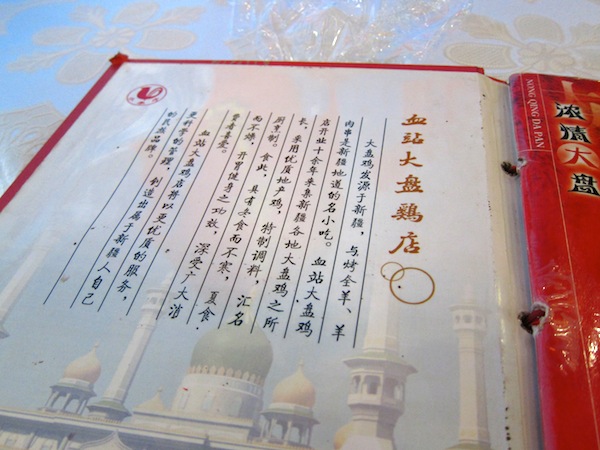 血站大盘鷄店
大盘鸡发源于新疆，与烤全羊、羊
肉串是新疆地道的名小吃。血站大盘鸡
店开业十余年来集新疆各地大盘鸡之所
长，采用优质地产鸡，特制调料，汇名
厨烹制。食此，具有冬食而不寒，夏食
而不燥，开胃健身之功效，深受广大消
费者喜爱。
血站大盘鸡店将以更优质的服务，
更科学的管理，创造出属于新疆人自己
的民族品牌。
NONG QING DA PAN
浓情大盘